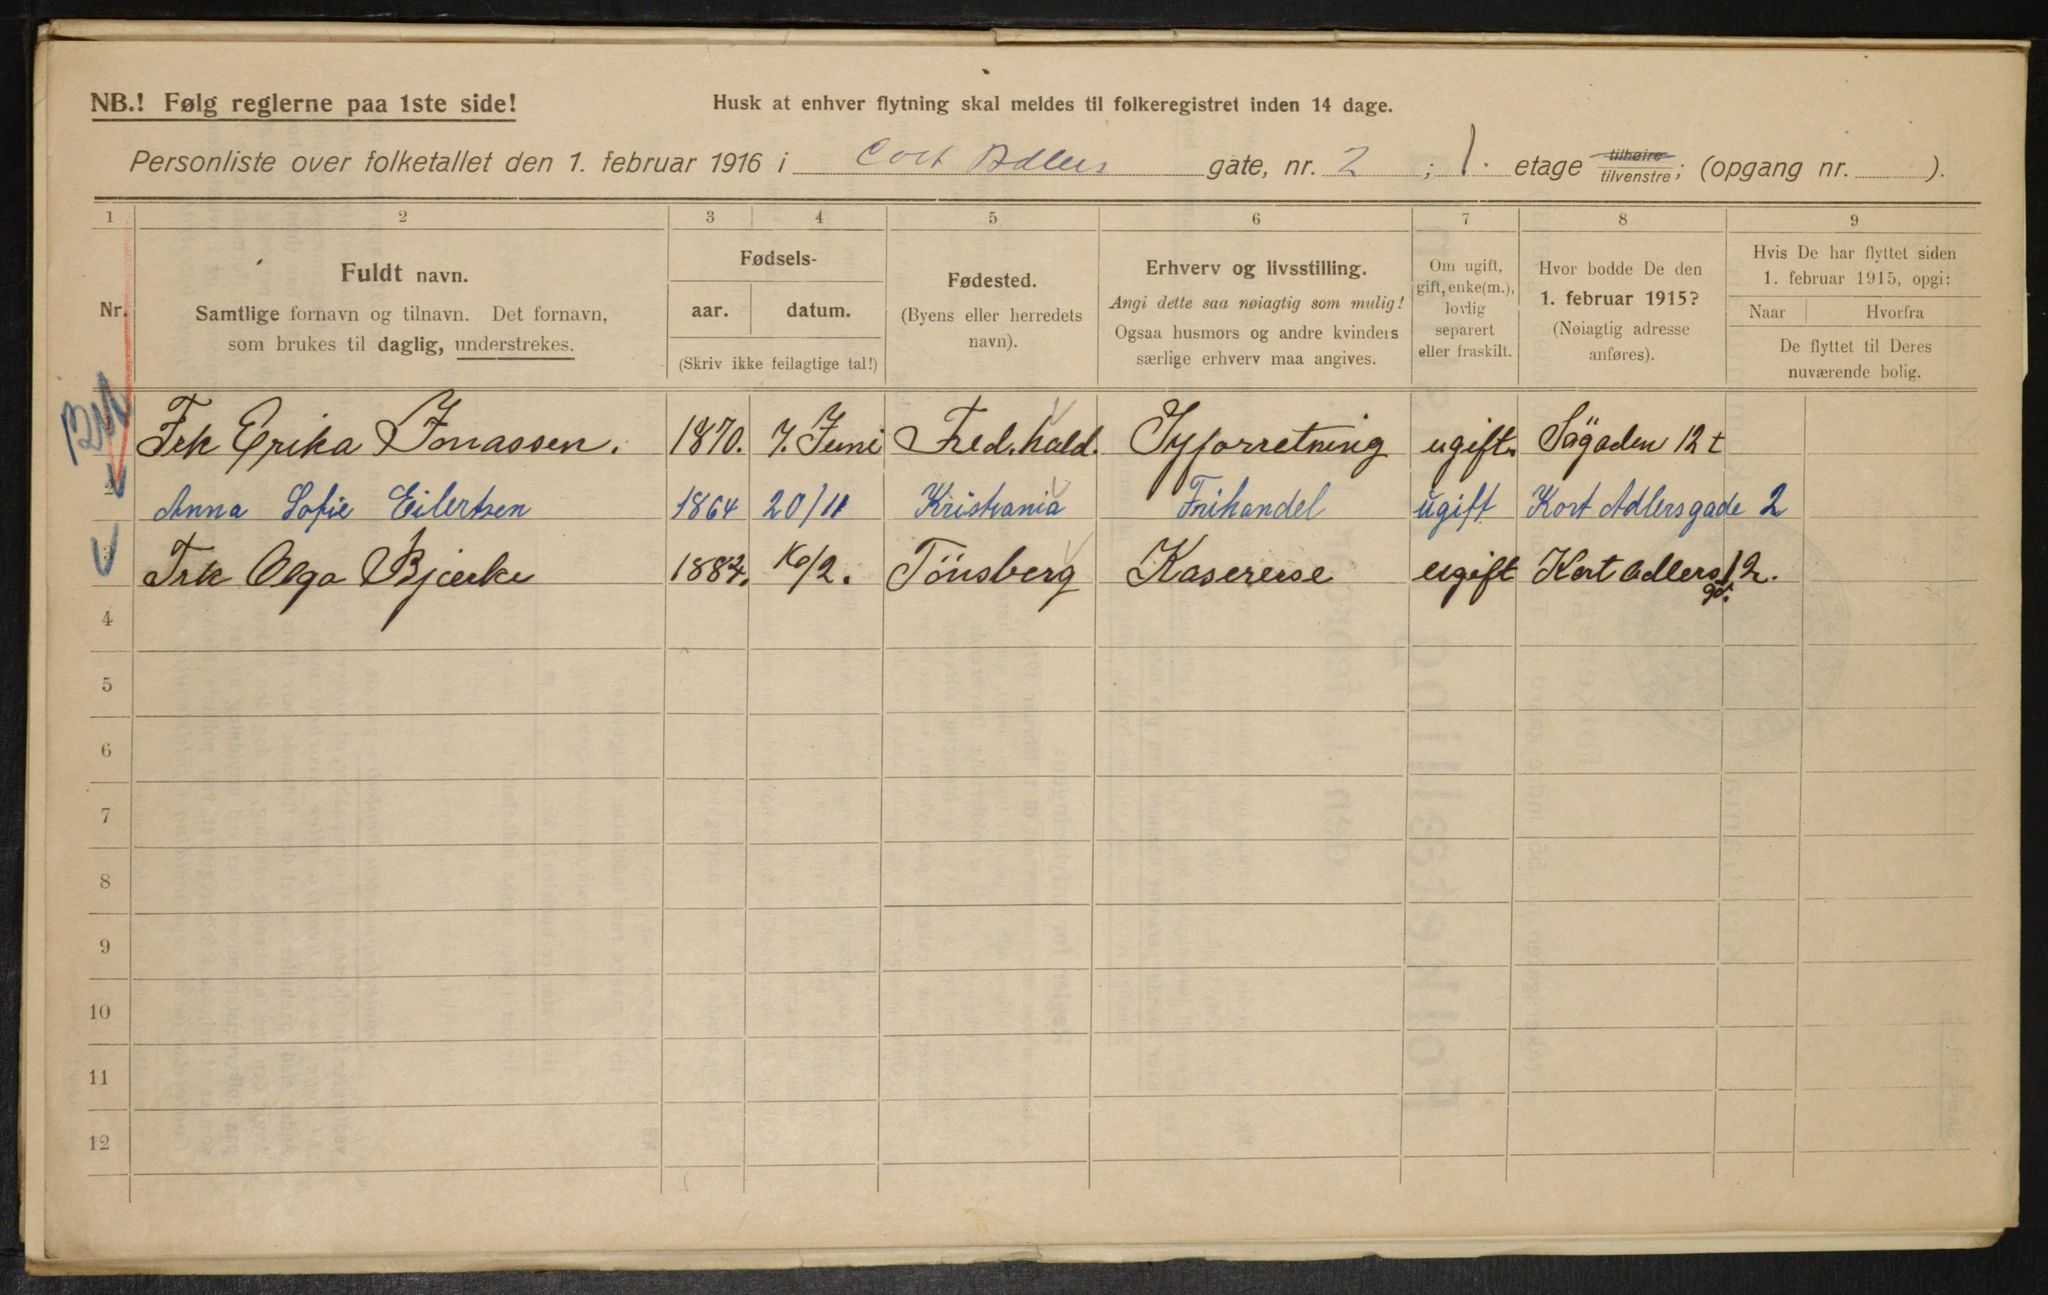 NB.! Følg reglerne paa 1ste side!
Husk at enhver flytning skal meldes til folkeregistret inden 14 dage.
Personliste over folketallet den 1. februar 1916 i Cort Adlers gate, nr. 2 ; 1. etage tilhøire tilvenstre; (opgang nr. ).
1 2 3 4 5 6 7 8 9
Nr.
Fuldt navn.
Samtlige fornavn og tilnavn. Det fornavn,
som brukes til daglig, understrekes.
Fødsels-
aar. datum.
(Skriv ikke feilagtige tal!)
Fødested.
(Byens eller herredets
navn).
Erhverv og livsstilling.
Angi dette saa nøiagtig som mulig!
Ogsaa husmors og andre kvinders
særlige erhverv maa angives.
Om ugift,
gift, enke(m.),
lovlig
separert
eller fraskilt.
Hvor bodde De den
1. februar 1915?
(Nøiagtig adresse
anføres).
Hvis De har flyttet siden
1. februar 1915, opgi:
Naar Hvorfra
De flyttet til Deres
nuværende bolig.
Frk Erika Jonassen. 1870. 7. Juni Fred.hald. Syforretning ugift.  12 t
2 Anna Sofie Eilertsen 1864 20/11 Kristiania Frihandel ugift Kort Adlersgade 2
3 Frk Olga Bjerke /2. Tönsberg Kasererse ugift Kort Adlers gd. 2.
4
5
6
7
8
9
10
11
12